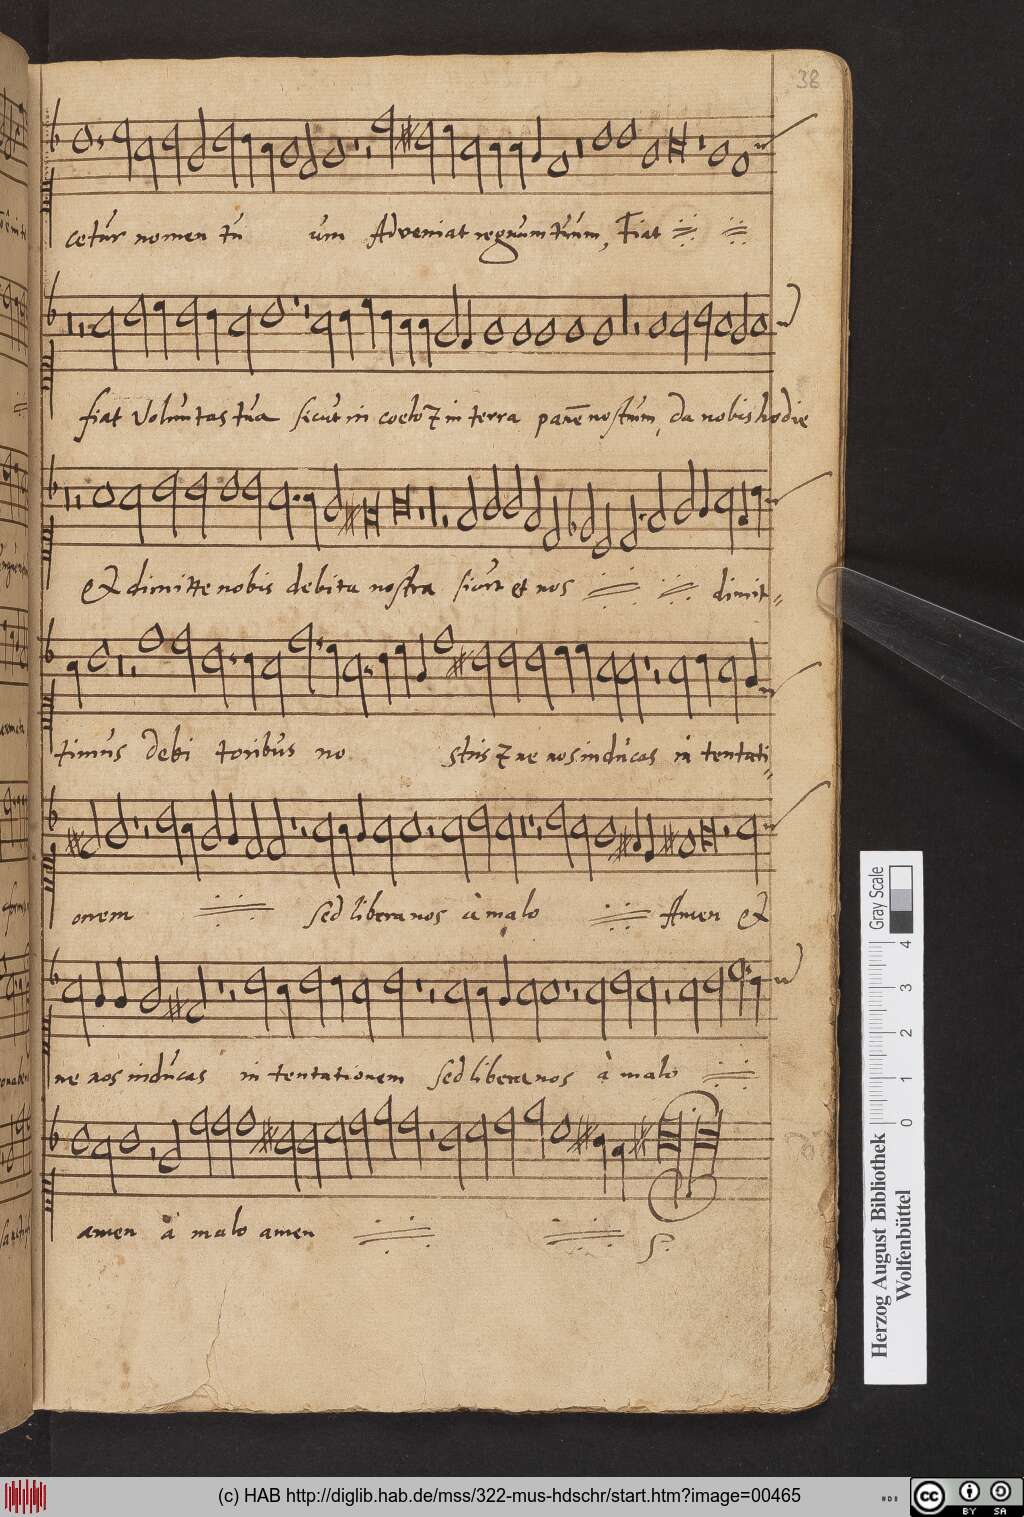 38
cetur nomen tu um Adveniat regnum tuum, Fiat
fiat voluntas tua sicut in coelo & in terra panē nostrum, da nobis hodie
Et dimitte nobis debita nostra sicut et nos dimit=
timus debi toribus no stris & ne nos inducas in tentati=
onem sed libera nos à malo Amen Et
ne nos inducas in tentationem sed libera nos à malo
amen à malo amen
Gray Scale
0 1 2 3 4
Herzog August Bibliothek
Wolfenbüttel
(c) HAB http://diglib.hab.de/mss/322-mus-hdschr/start.htm?image=00465
cc BY SA